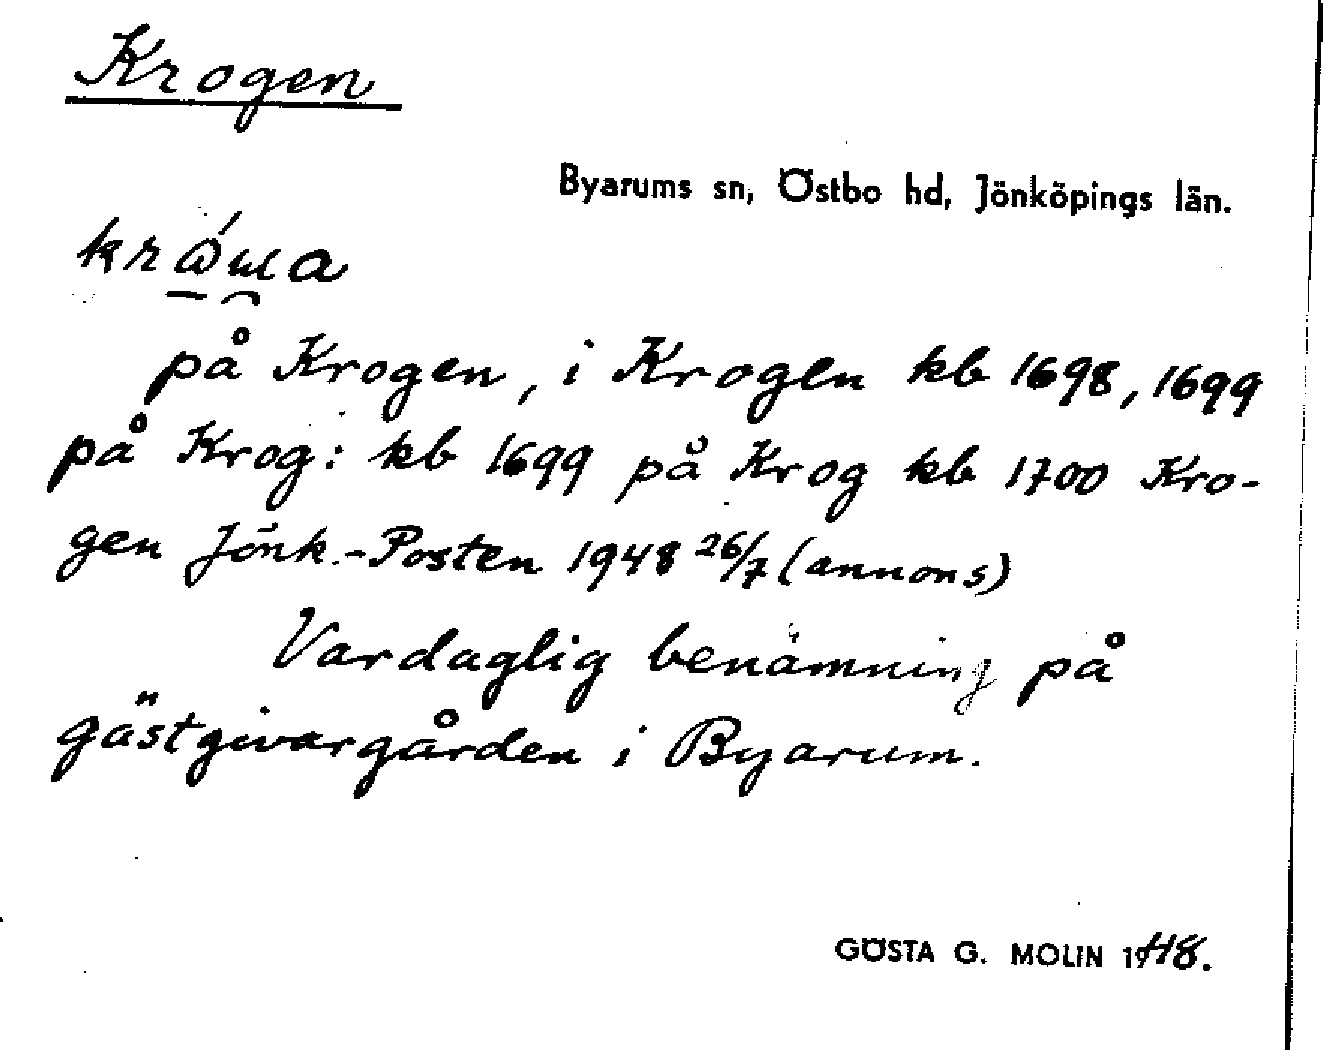 Krogen
Byarums sn, Östbo hd, Jönköpings län.
på Krogen, i Krogen kb 1698, 1699
på Krog: kb 1699 på Krog kb 1700 Kro-
gen Jönk.-Posten 1948 26/7 (annons)
Vardaglig benämning på
gästgivargården i Byarum.
GÖSTA G. MOLIN 1948.